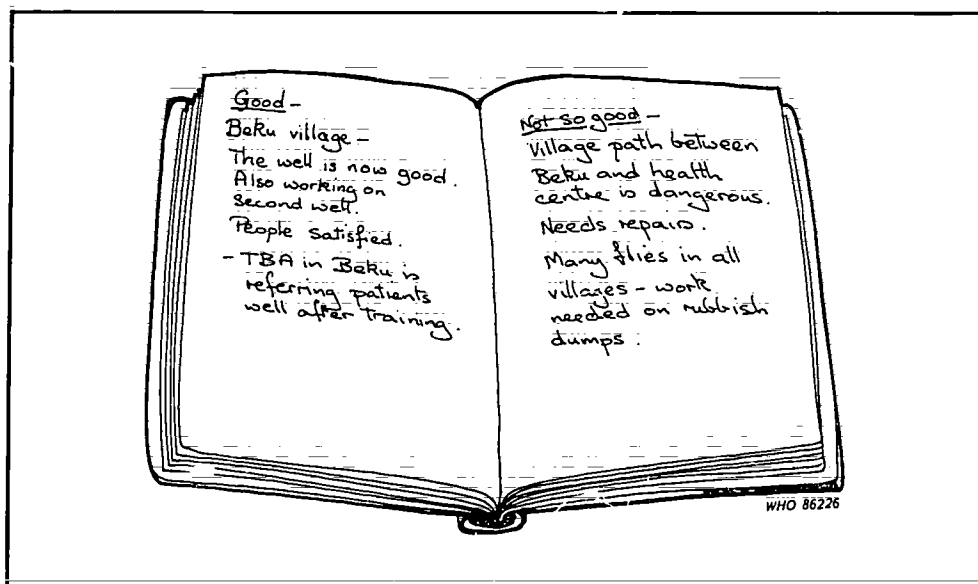 Good –
Beku village –
The well is now good.
Also working on
second well.
People satisfied.
– TBA in Beku is
referring patients
well after training.
Not so good –
Village path between
Beku and health
centre is dangerous.
Needs repairs.
Many flies in all
villages – work
needed on rubbish
dumps.
WHO 86226